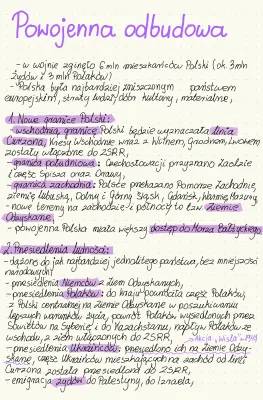 Powojenna odbudowa
- w wojnie zginęło 6 mln mieszkańców Polski (ok. 3mln
Żydów i 3 mln Polaków)
- Polska była najbardziej zniszczonym państwem
europejskim, straty ludzi, dóbr kultury, materialne,
1. Nowe granice Polski:
- wschodnią granicę Polski będzie wyznaczała linia
Curzona, Kresy Wschodnie wraz z Wilnem, Grodnem, Lwowem
zostały włączone do ZSRR,
- granica południowa: Czechosłowacji przyznano Zaolzie
i część Spisza oraz Orawy,
- granica zachodnia: Polsce przekazano Pomorze Zachodnie,
ziemię lubuską, Dolny i Górny Śląsk, Gdańsk, Warmię, Mazury
- nowe terena na zachodzie i północy to tzw. Ziemie
Odzyskane,
- powojenna Polska miała większy dostęp do Morza Bałtyckiego
2. Przesiedlenia ludności:
- dążono do jak najbardziej jednolitego państwa, bez mniejszości
narodowych
- przesiedlenia Niemców z Ziem Odzyskanych,
- przesiedlenia Polaków: do kraju powróciła część Polaków,
z Polski centralnej na Ziemie Odzyskane w poszukiwaniu
lepszych warunków życia, powrót Polaków wysiedlonych przez
Sowietów na Syberię i do Kazachstanu, napływ Polaków ze
wschodu, z ziem włączonych do ZSRR,
"Akcja "Wisła" - 1947
- przesiedlenia Ukraińców: przesiedlono ich na Ziemie Odzy-
skane, część Ukraińców mieszkających na zachód od linii
Curzona została przesiedlona do ZSRR,
- emigracja Żydów do Palestyny, do Izraela,